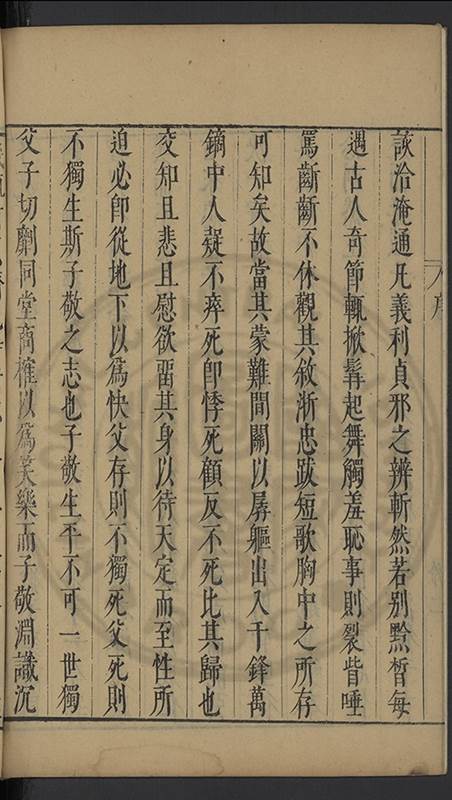 序
該洽淹通凡義利貞邪之辨斬然若別黔皙每
遇古人奇節輒掀髯起舞觸羞恥事則裂眥唾
罵齗齗不休觀其敘浙忠跋短歌胸中之所存
可知矣故當其蒙難間關以孱軀出入千鋒萬
鏑中人疑不瘁死卽悸死顧反不死比其歸也
交知且悲且慰欲畱其身以待天定而至性所
迫必卽從地下以爲快父存則不獨死父死則
不獨生斯子敬之志也子敬生平不可一世獨
父子切劘同堂商榷以爲笑樂而子敬淵識沉